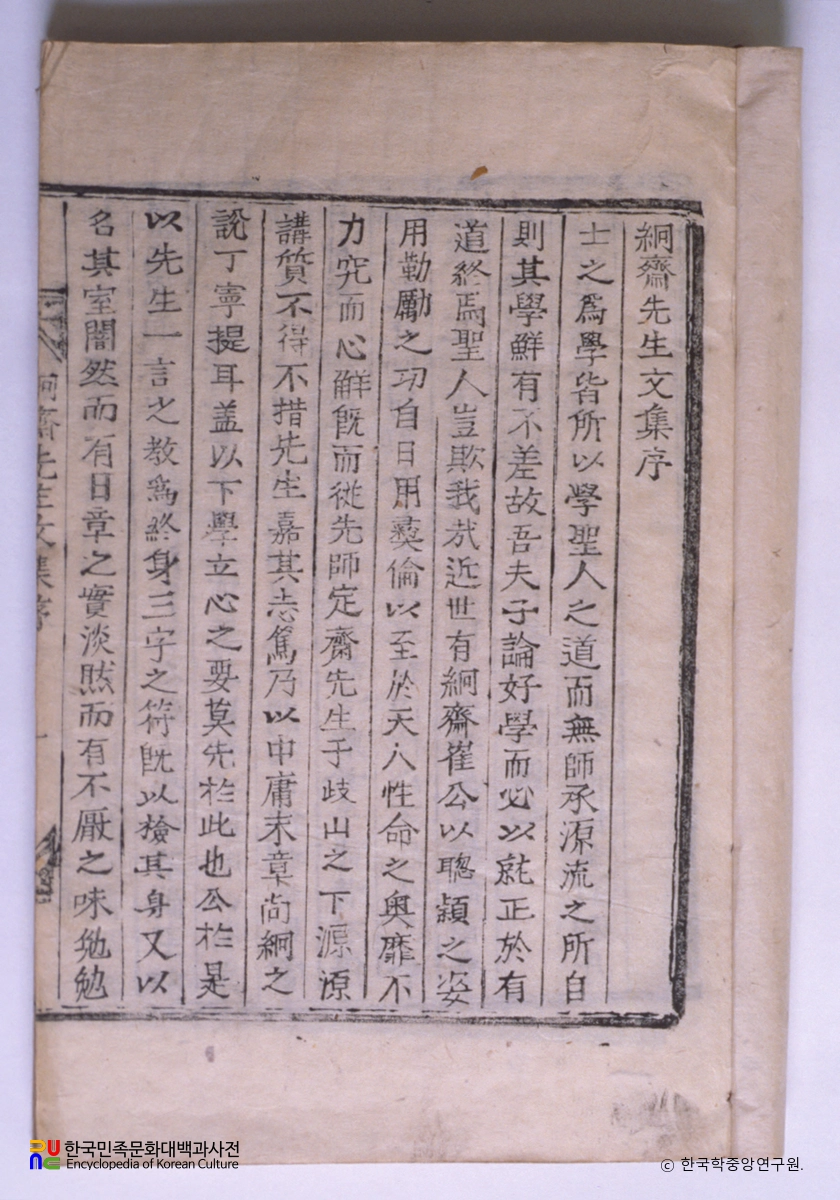 絅齋先生文集序
士之爲學皆所以學聖人之道而無師承源流之所自
則其學鮮有不差故吾夫子論好學而必以就正於有
道終焉聖人豈欺我哉近世有絅齋崔公以聰穎之姿
用勤勵之功自日用彜倫以至於天人性命之奧靡不
力究而心觧旣而從先師定齋先生于歧山之下源源
講質不得不措先生嘉其志篤乃以中庸末章尙絅之
說丁寧提耳盖以下學立心之要莫先於此也公於是
以先生一言之教爲終身三字之符旣以檢其身又以
名其室闇然而有日章之實淡然而有不厭之味勉勉
絅齋先生文集序
一
한국민족문화대백과사전
Encyclopedia of Korean Culture
ⓒ 한국학중앙연구원.